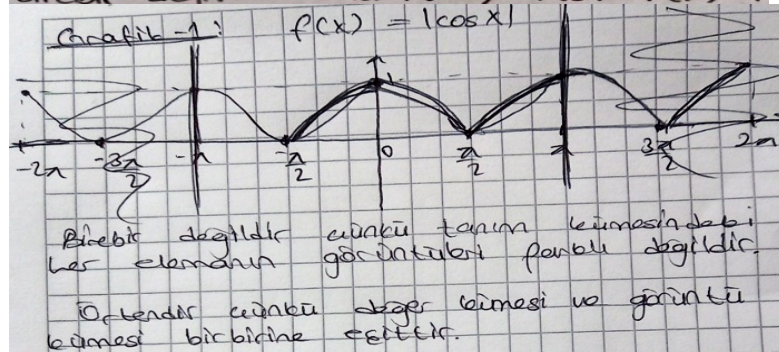 Grafik-1: f(x) = |cosx|
1
-2π -3π/2 -π -π/2 0 π/2 π 3π/2 2π
Birebir değildir çünkü tanım kümesindeki
her elemanın görüntüleri farklı değildir.
Örtendir çünkü değer kümesi ve görüntü
kümesi birbirine eşittir.